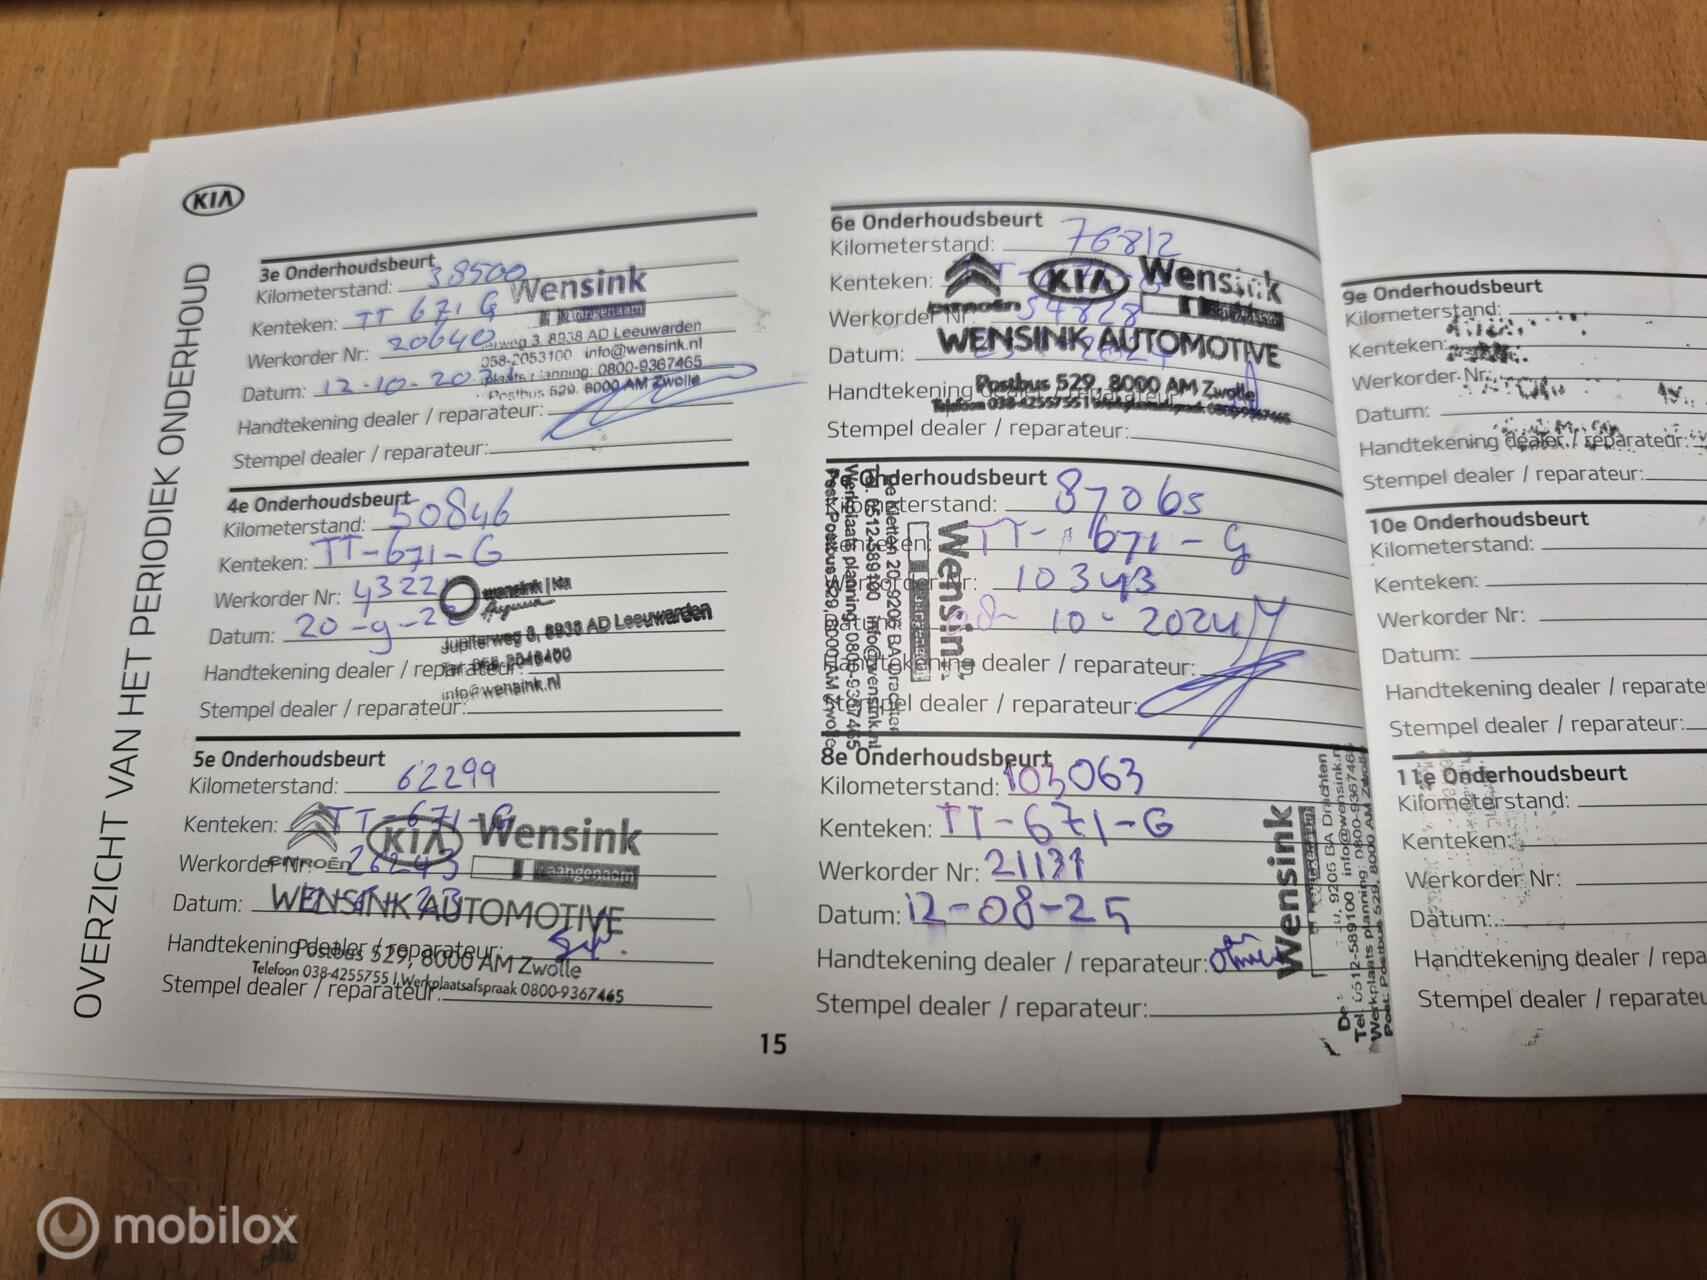 KIA
OVERZICHT VAN HET PERIODIEK ONDERHOUD
3e Onderhoudsbeurt
Kilometerstand: 38500
Kenteken: TT 671 G
Werkorder Nr: 20640
Datum: 12-10-20
Handtekening dealer / reparateur:
Stempel dealer / reparateur:
Wensink
aangenaam
3, 8938 AD Leeuwarden
058-2053100 info@wensink.nl
planning: 0800-9367465
Postbus 529, 8000 AM Zwolle
4e Onderhoudsbeurt
Kilometerstand: 50846
Kenteken: TT-671-G
Werkorder Nr: 4322
Datum: 20-9-2
Handtekening dealer / reparateur:
Stempel dealer / reparateur:
wensink
Jupiterweg 3, 8938 AD Leeuwarden
info@wensink.nl
5e Onderhoudsbeurt
Kilometerstand: 62299
Kenteken: TT-671-G
Werkorder Nr: 26243
Datum:
Handtekening dealer / reparateur:
Stempel dealer / reparateur:
CITROËN KIA Wensink
aangenaam
WENSINK AUTOMOTIVE
Postbus 529, 8000 AM Zwolle
Telefoon 038-4255755 | Werkplaatsafspraak 0800-9367465
6e Onderhoudsbeurt
Kilometerstand: 76812
Kenteken:
Werkorder Nr: 54828
Datum:
Handtekening dealer / reparateur:
Stempel dealer / reparateur:
CITROËN KIA Wensink
WENSINK AUTOMOTIVE
Postbus 529, 8000 AM Zwolle
Telefoon 038-4255755 | Werkplaatsafspraak 0800-9367465
7e Onderhoudsbeurt
Kilometerstand: 87065
Kenteken: TT-671-G
Werkorder Nr: 10343
Datum: 10-2024
Handtekening dealer / reparateur:
Stempel dealer / reparateur:
Wensink
20, 9206 BA Drachten
0512-589100 info@wensink.nl
Werkplaats planning: 0800-9367465
Post: Postbus 529, 8000 AM Zwolle
8e Onderhoudsbeurt
Kilometerstand: 103063
Kenteken: TT-671-G
Werkorder Nr: 21131
Datum: 12-08-25
Handtekening dealer / reparateur:
Stempel dealer / reparateur:
Wensink
9206 BA Drachten
Tel. 0512-589100 info@wensink.nl
Werkplaats planning: 0800-9367465
Post: Postbus 529, 8000 AM Zwolle
15
9e Onderhoudsbeurt
Kilometerstand:
Kenteken:
Werkorder Nr:
Datum:
Handtekening dealer / reparateur:
Stempel dealer / reparateur:
10e Onderhoudsbeurt
Kilometerstand:
Kenteken:
Werkorder Nr:
Datum:
Handtekening dealer / reparate
Stempel dealer / reparateur:
11e Onderhoudsbeurt
Kilometerstand:
Kenteken:
Werkorder Nr:
Datum:
Handtekening dealer / repa
Stempel dealer / reparateu
mobilox